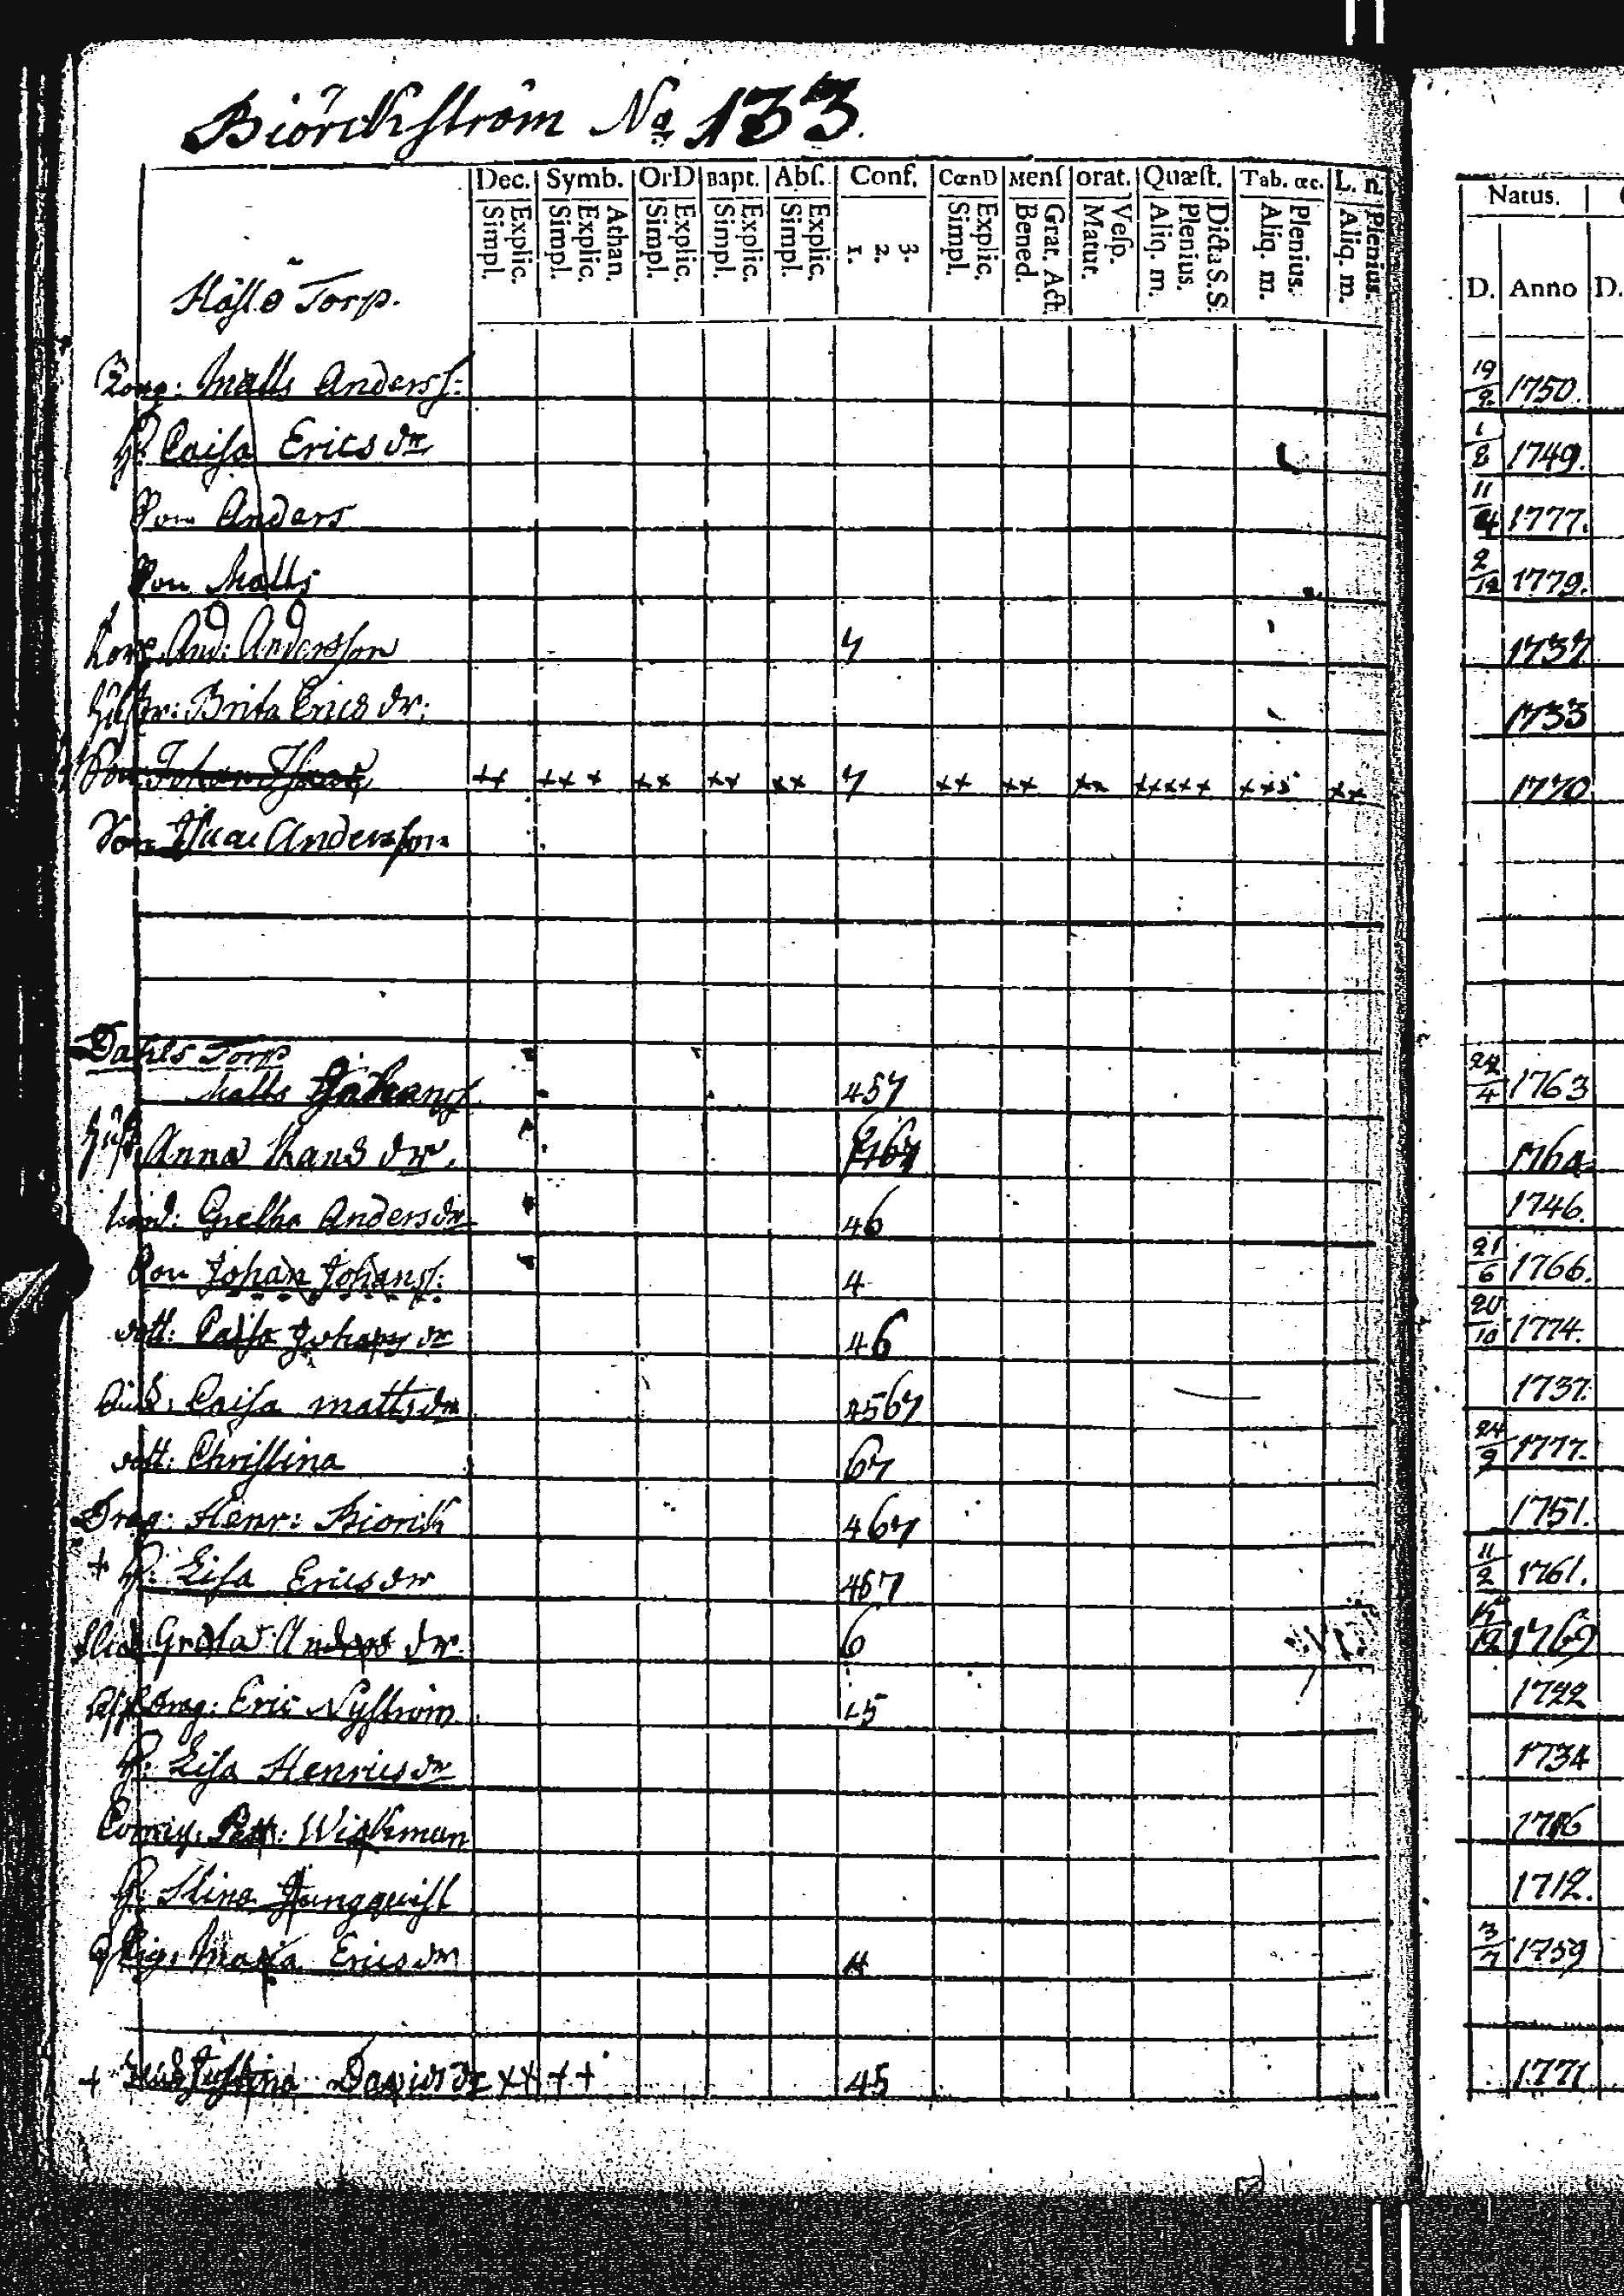 Biörckström No 133.
Dec. Symb. OrD Bapt. Abſ. Conf. CœnD Menſ orat. Quæſt. Tab. œc. L. n. Natus.
Simpl. Explic. Simpl. Explic. Athan. Simpl. Explic. Simpl. Explic. Simpl. Explic. 1. 2. 3. Simpl. Explic. Bened. Grat. Act. Matut. Veſp. Aliq. m. Plenius. Dicta S. S. Aliq. m. Plenius. Aliq. m. Plenius. D. Anno D.
Torp.
Matts Anderss: 19/9 1750.
H: Caisa Ericsdr 1/8 1749.
Son Anders 11/4 1777.
Son Matts 2/12 1779.
And: Andersson 7 1737
Hustr: Brita Erics dr: 1733
Son Johan xx xxx xx xx xx 7 xx xx xx xxxxx xxx xx 1770
Son Isaac Andersson
Dahls Torp
Matts Johanss 457 24/4 1763
Hust Anna Mans dr. 1764
Grelha Andersdr 46 1746.
Son Johan Johanss: 4 21/6 1766.
dott: Caisa Johans dr 46 20/10 1774.
Caisa mattsdr 4567 1737.
dott: Christina 67 24/9 1777.
Drag: Henr: Biörck 467 1751.
+ H: Lisa Ericsdr 457 11/2 1761.
Greta Anders dr. 6 1769
drag: Eric Nyström 45 1722
H: Lisa Henricsdr 1734
Pett: Wickman 1716
H: Stina Jungquist 1712.
Maria Ericsdr 4 3/7 1759
+ Justina Davidsdr xx ++ 45 1771